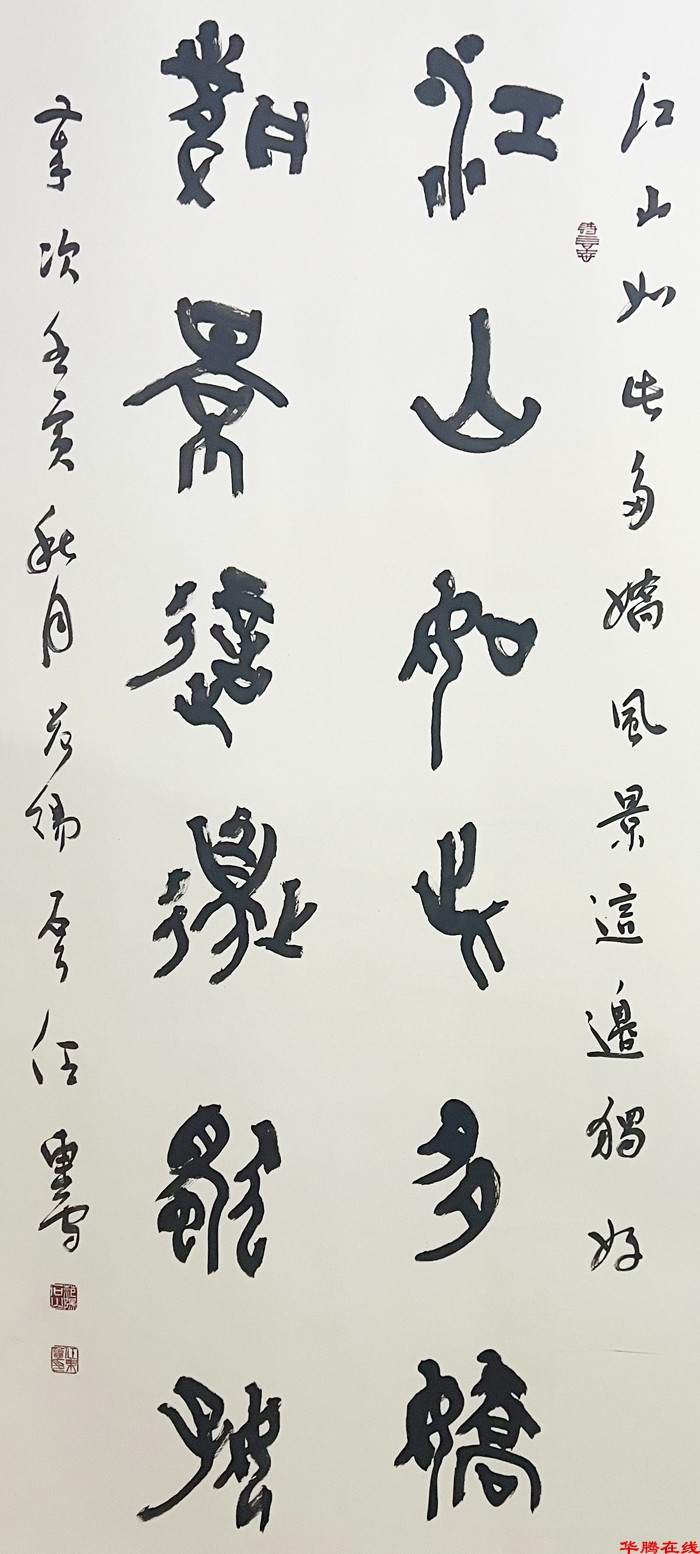 江山如此多嬌風景這邊獨好
江山如此多嬌
風景這邊獨好
次壬寅秋月
华腾在线